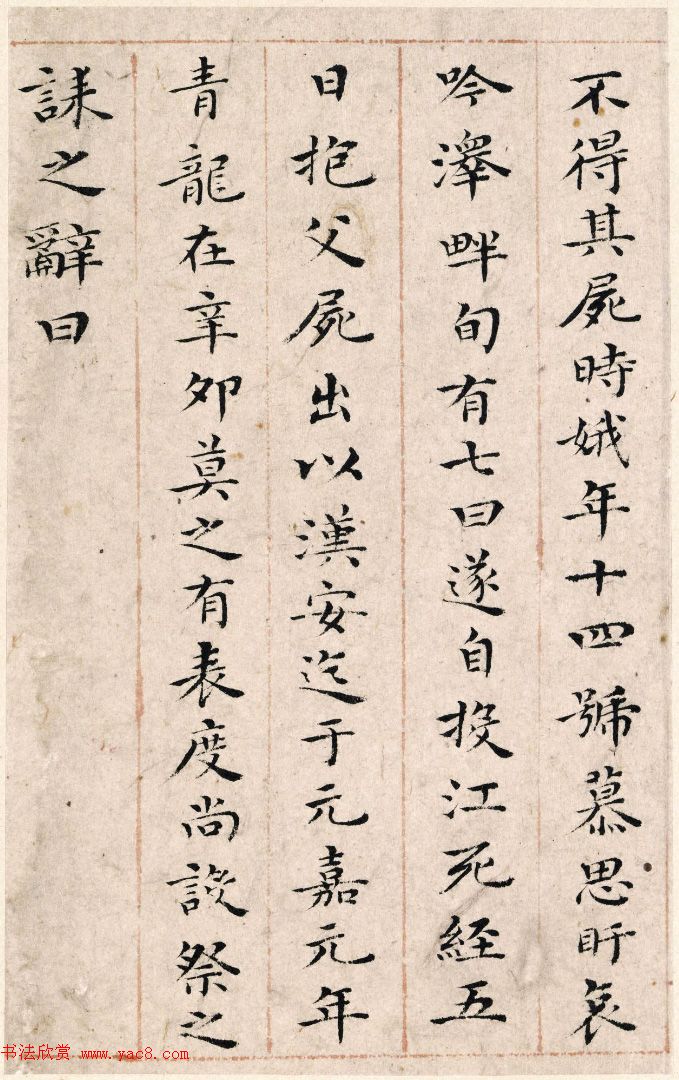 不得其屍時娥年十四號慕思盱哀
吟澤畔旬有七日遂自投江死經五
日抱父屍出以漢安迄于元嘉元年
青龍在辛卯莫之有表度尚設祭之
誄之辭曰
书法欣赏 www.yac8.com